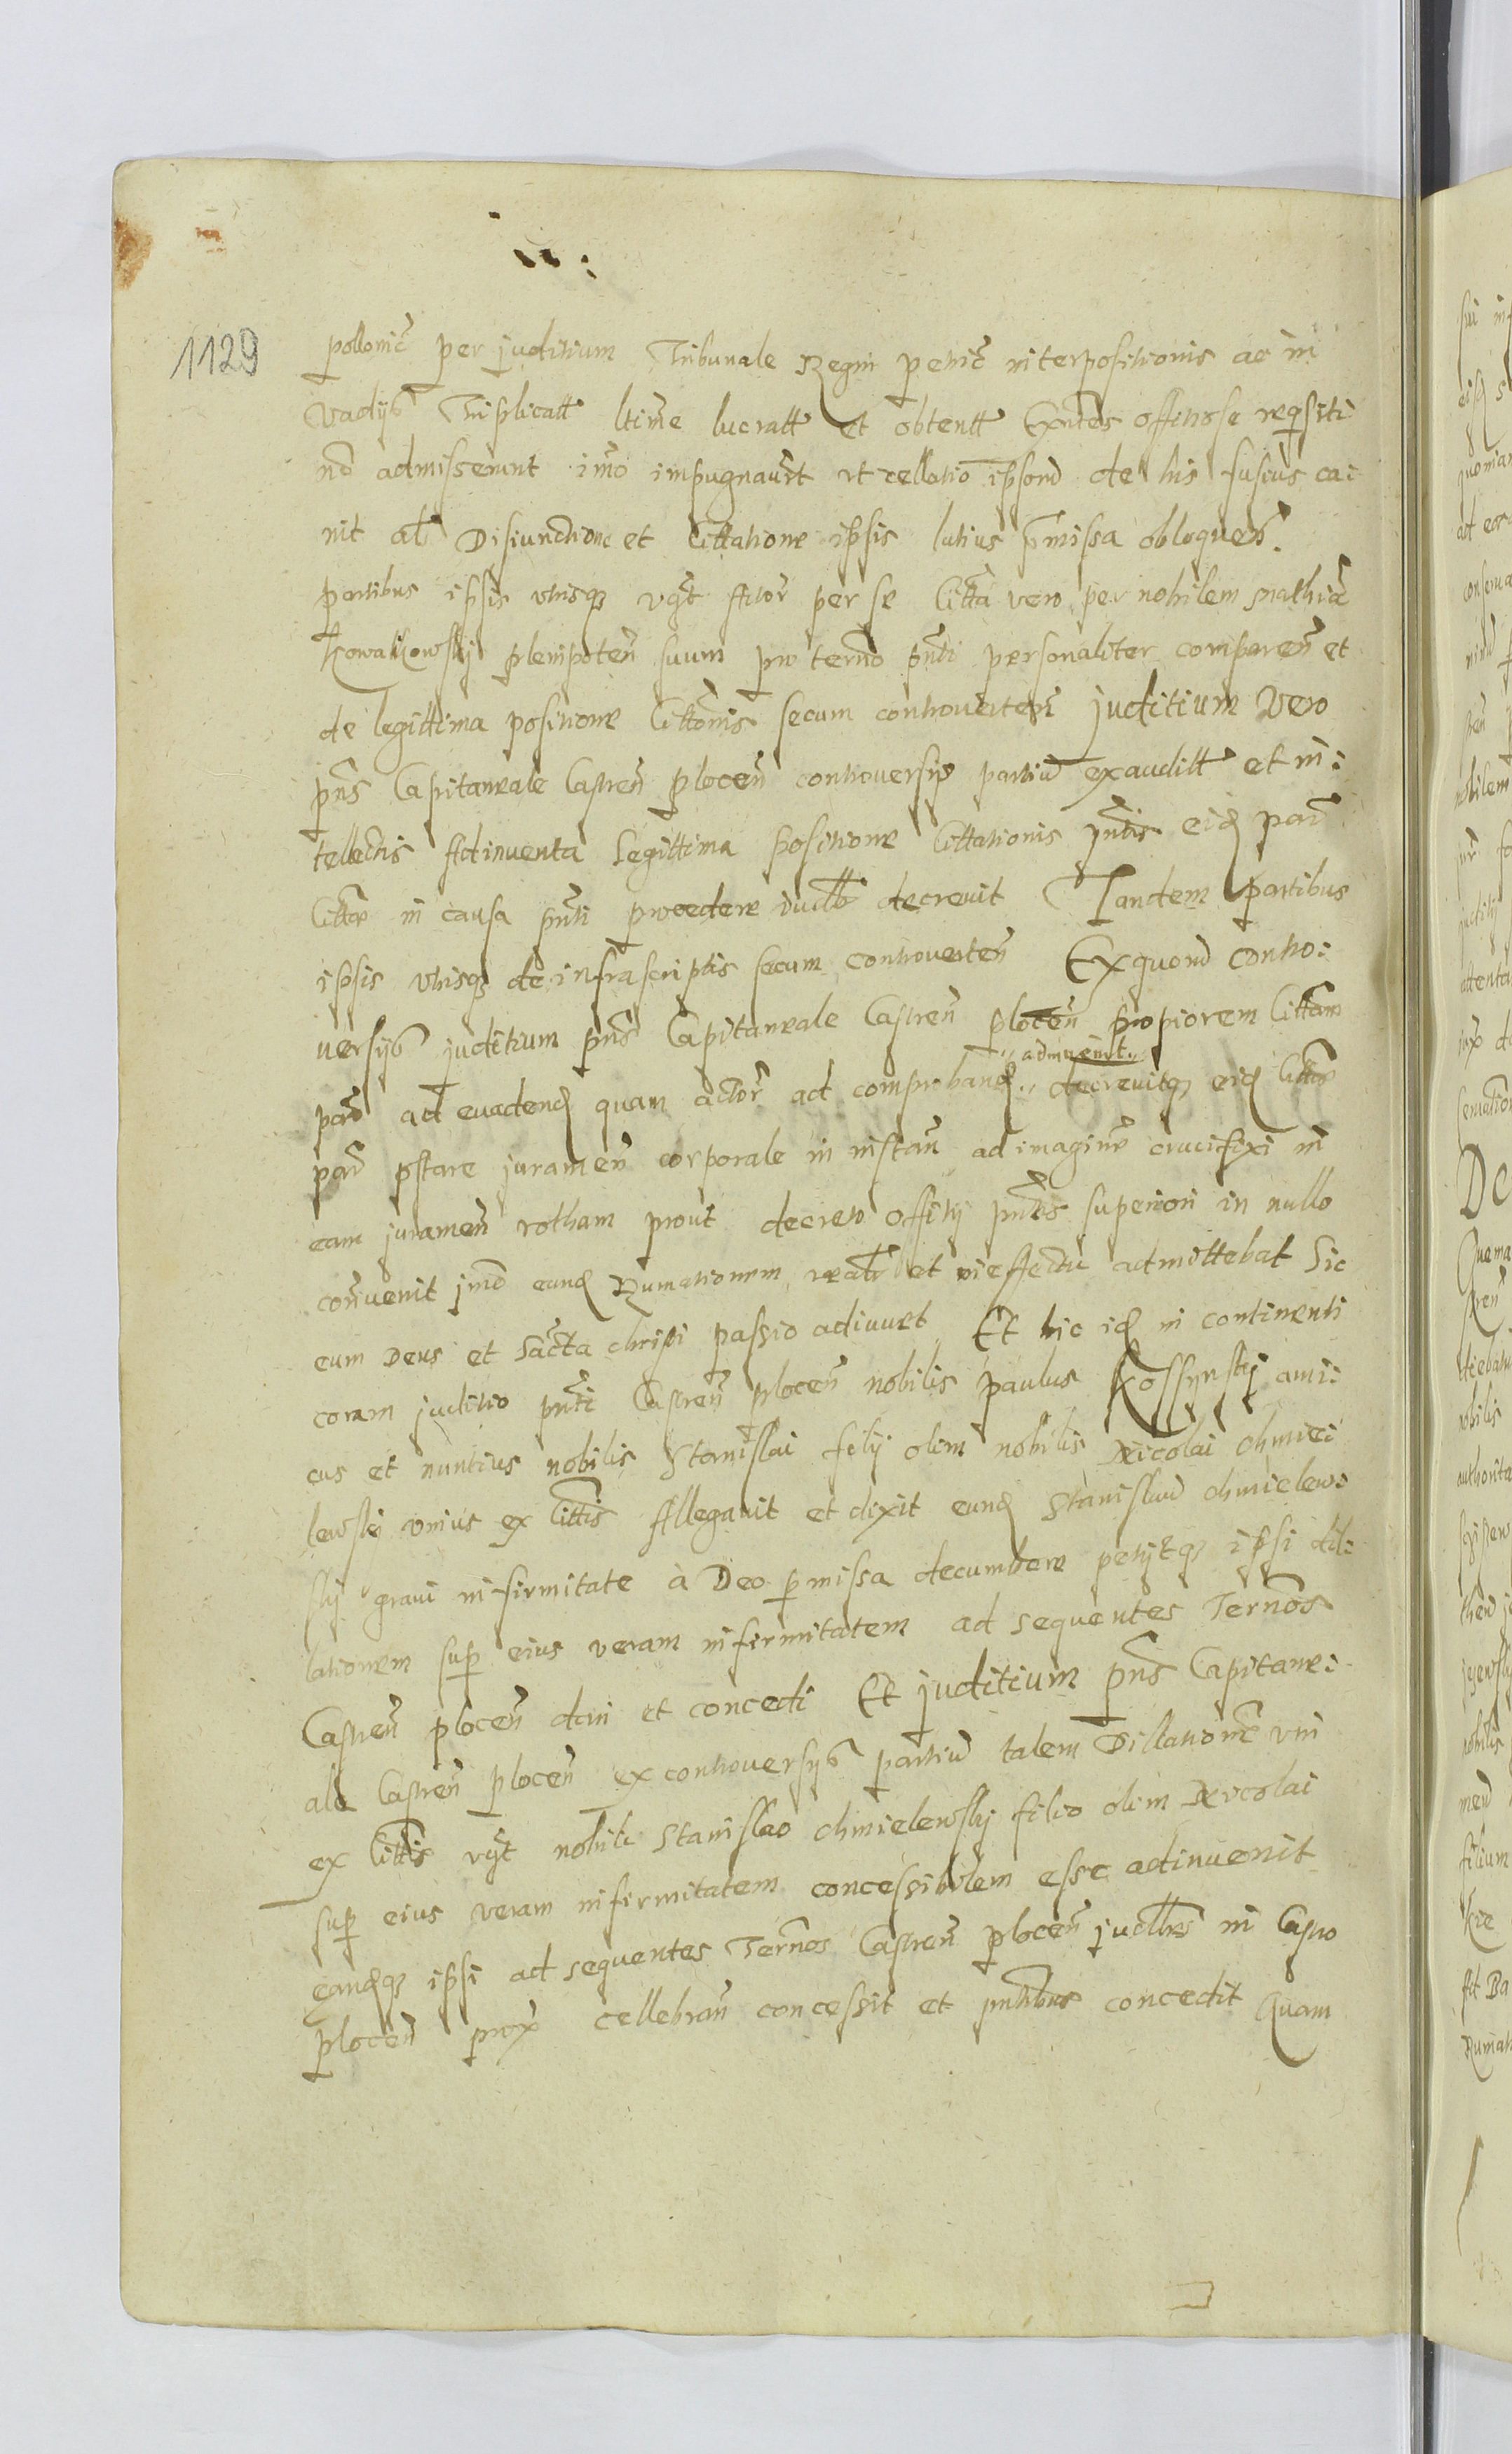 1129
pollonic̄ per juditium Tribunale Regni petric̄ interpositionis ac in
vadijs Triplicatt ltime lucratt et obtentt Exntes offitiose reqsiti
nō admisserunt imo impugnaver̄t ut rellatio ipsorū de his fusius ca:
nit alr̄ Disiunctione et Cittatione ipsis lutius pmissa obloquen̄.
partibus ipsis utrisq̨ vq̄t Actor̄ per se Citta vero per nobilem Mathiā
Kowalkowskij plenipoten̄ suum pro termō pn̄ti personaliter comparen̄ et
de legittima positione Cittōnis secum controverten̄ juditium Vero
pn̄s Capitaneale Castren̄ plocen̄ controversijs partiū exauditt et in:
tellectis Adinventa Legittima positione Cittationis pn̄tis eid̨ par̄
Cittae in causa pn̄ti procedere iuclr̄ decrevit Tandem partibus
ipsis utrisq̨ de infrascriptis secum controverten̄ Ex quorū contro:
versijs juditium pn̄s Capitaneale Castren̄ plocen̄ propiorem Cittam
par̄ ad evadend̨ quam actor̄ ad comproband̨ ,, adinvenit ,, decrevitq̨ eid̨ Cittae
par̄ pstare juramen̄ corporale in instan̄ ad imaginē crucifixi in
eam juramen̄ rotham prout decreto offitij pn̄tis superiori in nullo
convenit imo eand̨ Rumationem realr̄ et in effectu admittebat Sic
eum Deus et Sācta christi passio adiuvet Et hic id̨ in continenti
coram juditio pn̄ti Castren̄ plocen̄ nobilis paulus Kossynskij ami:
cus et nuntius nobilis Stanislai filij olim nobilis Nicolai Chmie:
lewskij unius ex Cittis Allegavit et dixit eund̨ Stanislaū chmielew:
skij gravi infirmitate à Deo pmissa decumbere petijtq̨ ipsi dil:
lationem sup eius veram infirmitatem ad sequentes Terminos
Castren̄ plocen̄ dari et concedi Et juditium pn̄s Capitane:
ale Castren̄ plocen̄ ex controversijs partiū talem Dillationē uni
ex Cittis vq̄t nobili Stanislao chmielewskij filio olim Nicolai
sup eius veram infirmitatem concessibilem esse adinvenit
eand̨q̨ ipsi ad sequentes Terminos Castren̄ plocen̄ juclres in Castro
plocen̄ prox̄ cellebran̄ concessit et pn̄tibus concedit Quam